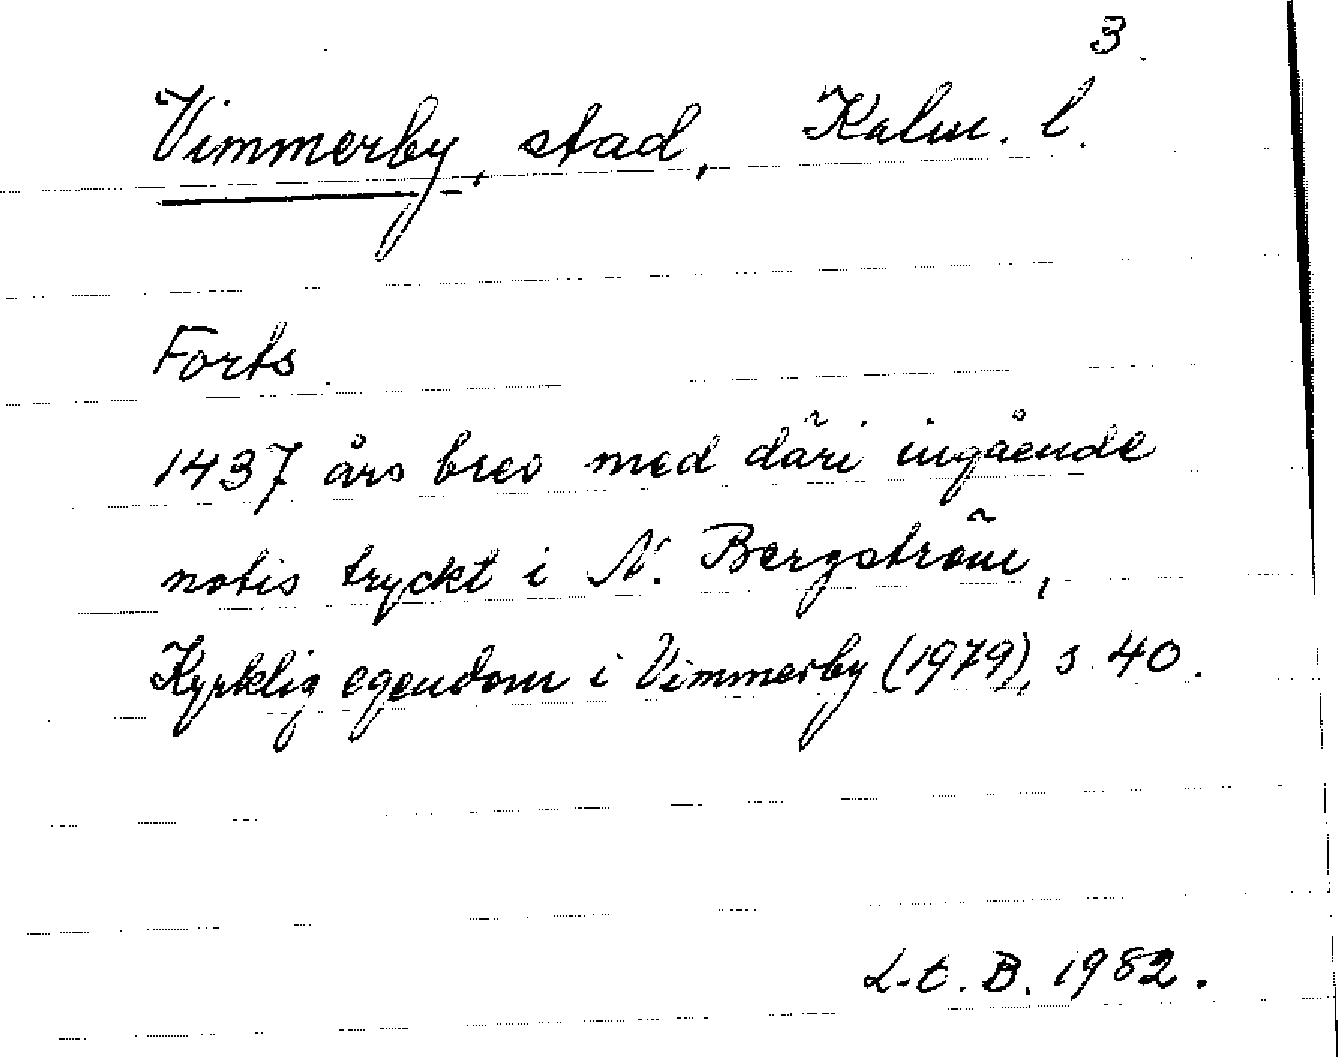 3.
Vimmerby, stad, Kalm. l.
Forts.
1437 års brev med däri ingående
notis tryckt i N. Bergström,
Kyrklig egendom i Vimmerby (1979), s. 40.
L-t. B. 1982.